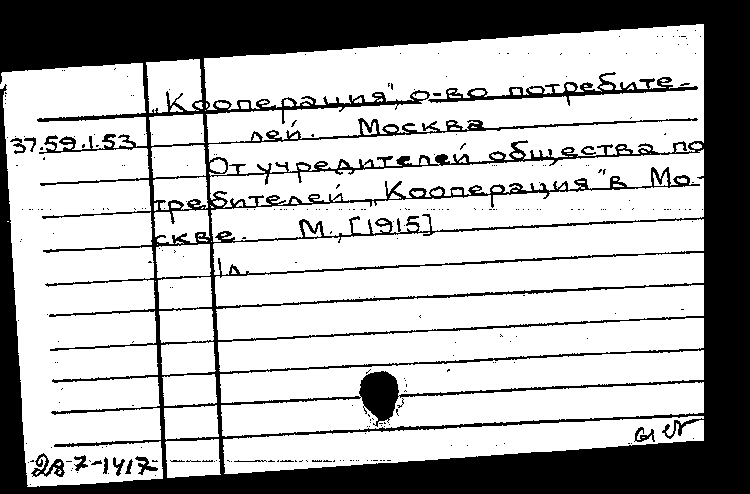 „Кооперация", о-во потребите-
37.59.1.53 лей. Москва
От учредителей общества по
требителей „Кооперация" в Мо-
скве. М., [1915]
1 л.
287-1417